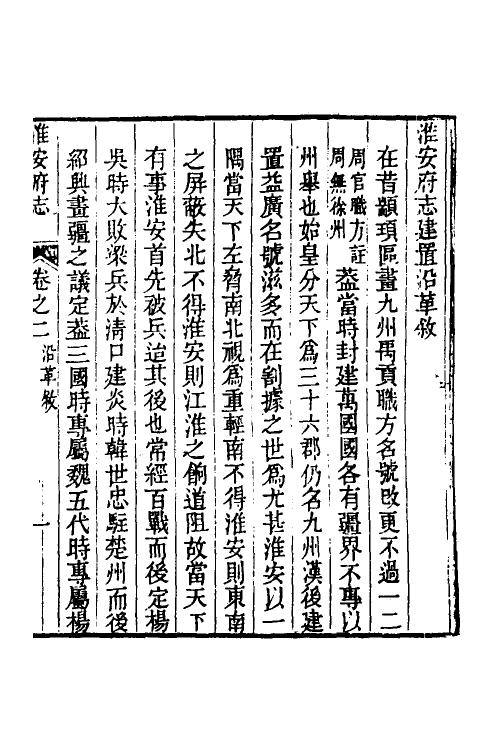 淮安府志建置沿革敘
在昔顓頊區畫九州禹貢職方名號改更不過一二
周官職方註
周無徐州
葢當時封建萬國國各有疆界不專以
州舉也始皇分天下爲三十六郡仍名九州漢後建
置益廣名號滋多而在割據之世爲尤甚淮安以一
隅當天下左脅南北視爲重輕南不得淮安則東南
之屏蔽失北不得淮安則江淮之餉道阻故當天下
有事淮安首先被兵迨其後也常經百戰而後定楊
吳時大敗梁兵於清口建炎時韓世忠駐楚州而後
紹興畫疆之議定葢三國時專屬魏五代時專屬楊
淮安府志
卷之二
沿革敘
一